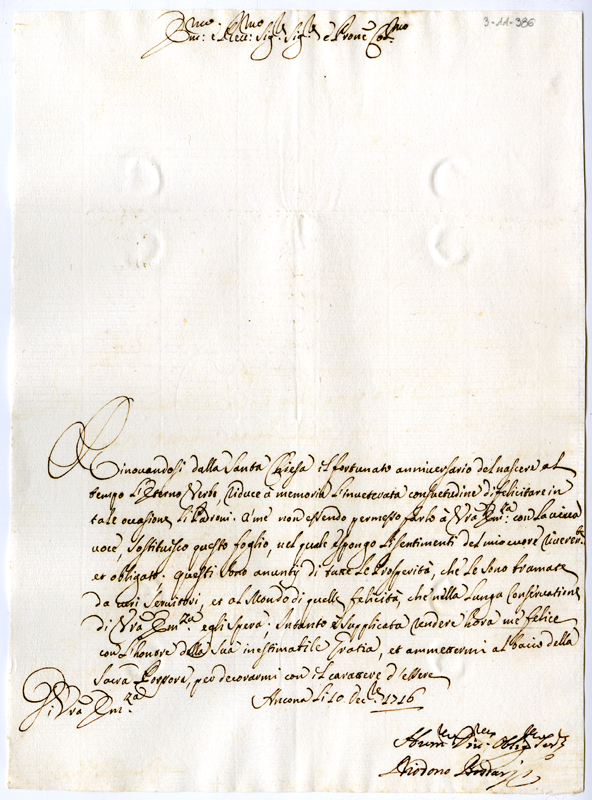 3-11-386
Em:mo e Reu:mo Sig.r Sig.r e Prone Col:mo
Rinovandosi dalla Santa Chiesa il fortunato anniversario del nascere al
tempo l'Eterno Verbo, riduce a memoria l'inveterata consuetudine di felicitare in
tale ocasione li Padroni. A me non essendo permesso farlo à Vra Em:za con la viva
voce, sostituisco questo foglio, nel quale espongo li sentimenti del mio cuore river:te
et obligato. Questi sono anuntij di tutte le Prosperità, che le sono bramate
da veri servitori, et al Mondo di quelle felicità, che nella lunga Conservatione
di Vra Em:za egli spera, Intanto è supplicata rendere hora me felice
con l'honore della sua inestimabile gratia, et ammettermi al bacio della
Sacra Porpora, per decorarmi con il carattere d'essere
Di Vra Em:za
Ancona li 10 Dec:re 1716
Hum:mo Diu:mo Oblig:mo Ser: